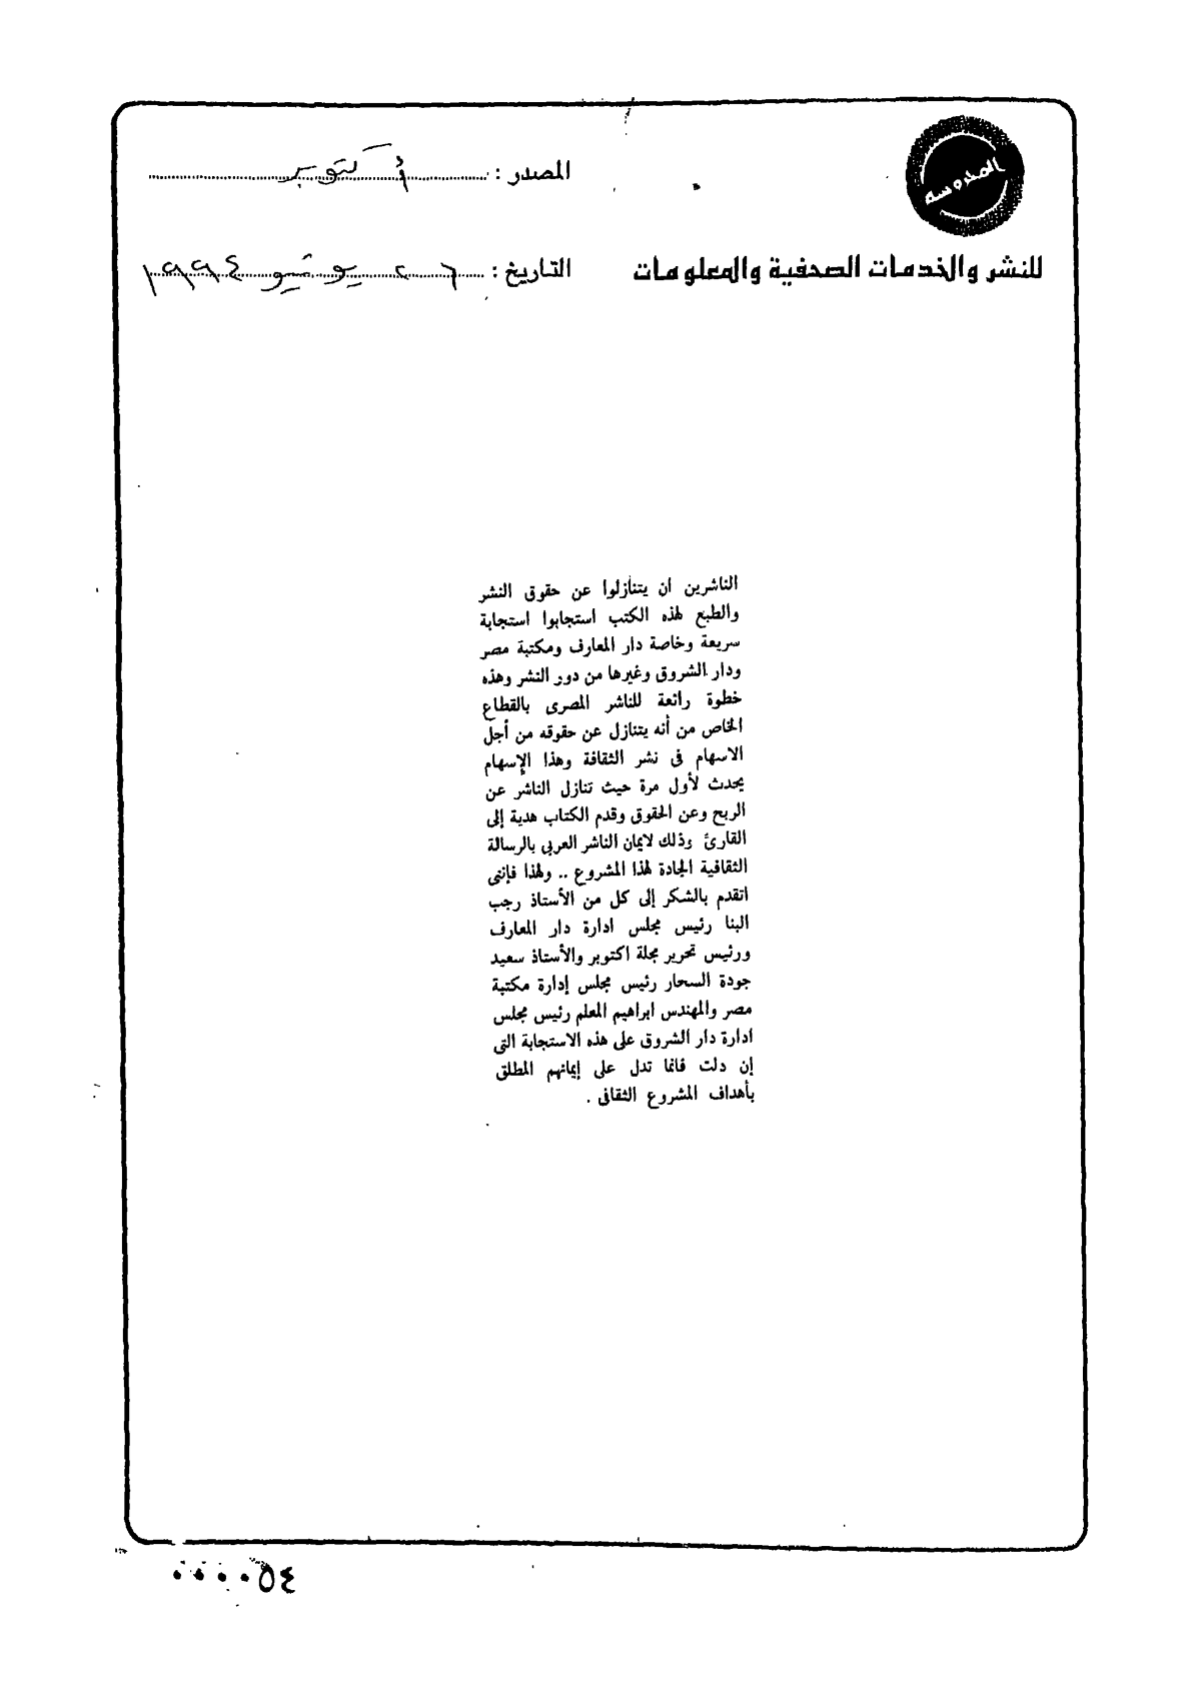 المحروسة
المصدر : أكتوبر
للنشر والخدمات الصحفية والمعلومات
التاريخ : ٢٦ يونيو ١٩٩٤
الناشرين ان يتنازلوا عن حقوق النشر
والطبع لهذه الكتب استجابوا استجابة
سريعة وخاصة دار المعارف ومكتبة مصر
ودار الشروق وغيرها من دور النشر وهذه
خطوة رائعة للناشر المصرى بالقطاع
الخاص من أنه يتنازل عن حقوقه من أجل
الاسهام فى نشر الثقافة وهذا الإسهام
يحدث لأول مرة حيث تنازل الناشر عن
الربح وعن الحقوق وقدم الكتاب هدية إلى
القارئ وذلك لايمان الناشر العربى بالرسالة
الثقافية الجادة لهذا المشروع .. ولهذا فإننى
اتقدم بالشكر إلى كل من الأستاذ رجب
البنا رئيس مجلس ادارة دار المعارف
ورئيس تحرير مجلة اكتوبر والأستاذ سعيد
جودة السحار رئيس مجلس إدارة مكتبة
مصر والمهندس ابراهيم المعلم رئيس مجلس
ادارة دار الشروق على هذه الاستجابة التى
إن دلت فانما تدل على إيمانهم المطلق
بأهداف المشروع الثقافى .
٠٠٠٠٥٤